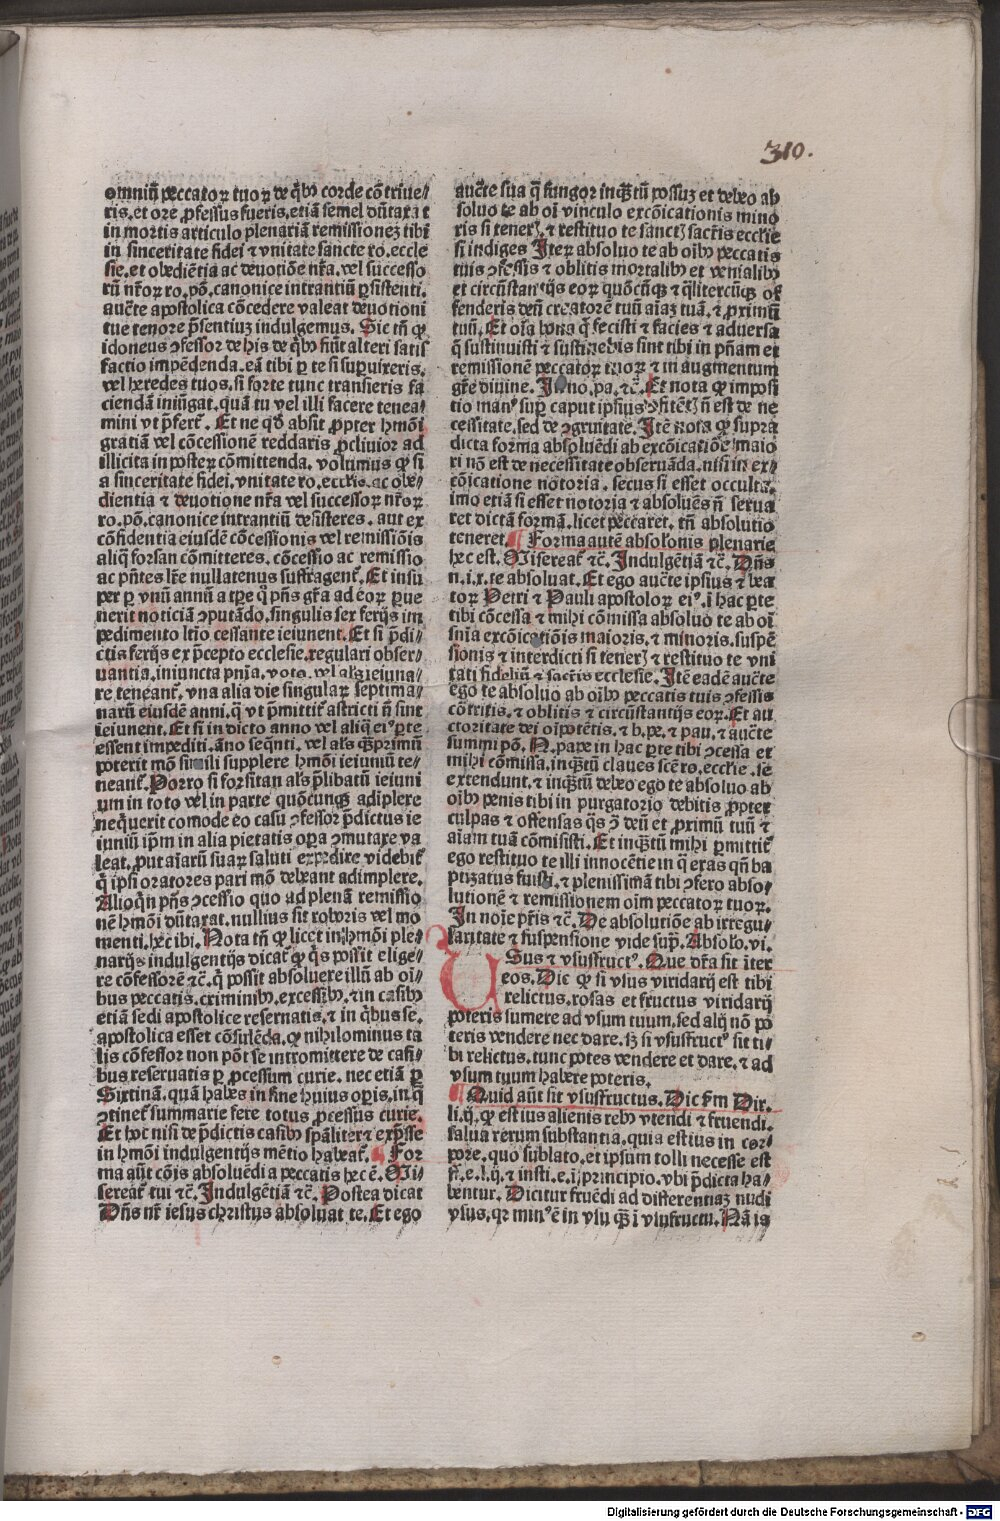 310.
omniū peccatoꝝ tuoꝝ de qͥbꝰ corde cōtriue⸗
ris. et ore ꝓfessus fueris. etiā semel dūtaxat
in mortis articulo plenariā remissionez tibi
in sinceritate fidei ⁊ vnitate sancte ro. eccle
sie. et obediētia ac deuotiōe nr̄a. vel successo
rū nr̄oꝝ ro. pō. canonice intrantiū ꝑsistenti.
aucte apostolica cōcedere valeat deuotioni
tue tenore p̄sentiuz indulgemus. Sic tn̄ ꝙ
idoneus ꝯfessor de his de qͥbꝰ fiūt alteri satis
factio impēdenda. eā tibi ꝑ te si suꝑuixeris.
vel heredes tuos. si forte tunc transieris fa
ciendā iniūgat. quā tu vel illi facere tenea⸗
mini vt p̄fert̄. Et ne qd̓ absit ꝓpter hmōi
gratiā vel cōcessionē reddaris ꝓcliuior ad
illicita in posteꝝ cōmittenda. volumus ꝙ si
a sinceritate fidei. vnitate ro. eccl̄ie. ac obe⸗
dientia ⁊ deuotione nr̄a vel successoꝝ nr̄oꝝ
ro. pō. canonice intrantiū desisteres. aut ex
cōfidentia eiusdē cōcessionis vel remissiōis
aliq̄ forsan cōmitteres. cōcessio ac remissio
ac pn̄tes lr̄e nullatenus suffragent̄. Et insu
per ꝑ vnū annū a tꝑe qͦ pn̄s gr̄a ad eoꝝ ꝑue
nerit noticiā ꝯputādo. singulis sex ferijs im
pedimento ltīo cessante ieiunent. Et si p̄di⸗
ctis ferijs ex p̄cepto ecclesie. regulari obser⸗
uantia. iniuncta pn̄ia. voto. vl̓ als̄ ieiuna⸗
re teneant̄. vna alia die singulaꝝ septima⸗
narū eiusdē anni. q̄ vt p̄mittit̄ astricti n̄ sint
ieiunent. Et si in dicto anno vel aliq̄ eiꝰ ꝑte
essent impediti. āno seqn̄ti. vel als̄ qꝫprimū
poterit mō simili supplere hmōi ieiuniū te⸗
neant̄. Porro si forsitan als̄ p̄libatū ieiuni
um in toto vel in parte quōcunqꝫ adiplere
nequerit comode eo casu ꝯfessor p̄dictus ie
iuniū ip̄m in alia pietatis oꝑa ꝯmutare va
leat. ꝓut aīarū suaꝝ saluti expedire videbit̄
q̄ ipsi oratores pari mō debeant adimplere.
Alioqn̄ pn̄s ꝯcessio quo ad plenā remissio
nē hmōi dūtaxat. nullius sit roboris vel mo
menti. hec ibi. Nota tn̄ ꝙ licet in hmōi ple⸗
narijs indulgentijs dicat̄ ꝙ qͥs possit elige⸗
re cōfessorē ⁊c̄. q̄ possit absoluere illū ab oī⸗
bus peccatis. criminibꝰ. excessibꝰ. ⁊ in casibꝰ
etiā sedi apostolice reseruatis. ⁊ in qͥbus se.
apostolica esset cōsulēda. ꝙ nihilominus ta
lis cōfessor non pōt se intromittere de casi⸗
bus reseruatis ꝑ ꝓcessum curie. nec etiā ꝑ
Sixtinā. quā habes in fine huius oꝑis. in qͦ
ꝯtinet̄ summarie fere totus ꝓcessus curie.
Et hoc nisi de p̄dictis casibꝰ spāliter ⁊ exp̄sse
in hmōi indulgentijs mētio habeat̄. ¶ For
ma aūt cōis absoluēdi a peccatis hec ē. Mi⸗
sereat̄ tui ⁊c̄. Indulgētiā ⁊c̄. Postea dicat
Dn̄s nr̄ iesus christus absoluat te. Et ego
aucte sua q̄ fungor inqꝫtū possuz et debeo ab
soluo te ab oī vinculo excōicationis mino
ris si teneris. ⁊ restituo te sanctis sacr̄is eccl̄ie
si indiges Iteꝝ absoluo te ab oībꝰ peccatis
tuis ꝯfessis ⁊ oblitis mortalibꝰ et venialibꝰ
et circūstantijs eoꝝ quōcūqꝫ ⁊ qͣlitercūqꝫ of
fenderis deū creatorē tuū aīaꝫ tuā. ⁊ ꝓximū
tuū. Et oīa bona q̄ fecisti ⁊ facies ⁊ aduersa
q̄ sustinuisti ⁊ sustinebis sint tibi in pn̄am et
remissionē peccatoꝝ tuoꝝ ⁊ in augmentum
gr̄e diuine. In no. pa. ⁊c̄. Et nota ꝙ imposi
tio manꝰ suꝑ caput ipsius ꝯfitētis n̄ est de ne
cessitate. sed de ꝯgruitate. Itē nota ꝙ supra
dicta forma absoluēdi ab excōicatiōe maio
ri nō est de necessitate obseruāda. nisi in ex⸗
cōicatione notoria. secus si esset occulta.
imo etiā si esset notoria ⁊ absoluēs n̄ serua
ret dictā formā. licet peccaret. tn̄ absolutio
teneret. ¶ Forma autē absolonis plenarie
hec est. Misereat̄ ⁊c̄. Indulgētiā ⁊c̄. Dn̄s
n. i. x. te absoluat. Et ego aucte ipsius ⁊ bea
toꝝ Petri ⁊ Pauli apostoloꝝ eiꝰ. ī hac ꝑte
tibi cōcessa ⁊ mihi cōmissa absoluo te ab oī
sn̄ia excōicatiōis maioris. ⁊ minoris. suspē
sionis ⁊ interdicti si teneris ⁊ restituo te vni
tati fideliū ⁊ sacr̄is ecclesie. Itē eadē aucte
ego te absoluo ab oībꝰ peccatis tuis ꝯfessis
cōtritis. ⁊ oblitis ⁊ circūstantijs eoꝝ. Et au
ctoritate dei oīpotētis. ⁊ b. pe. ⁊ pau. ⁊ aucte
summi pō. N. pape in hac ꝑte tibi ꝯcessa et
mihi cōmissa. inqꝫtū claues scē ro. eccl̄ie. se
extendunt. ⁊ inqꝫtū debeo ego te absoluo ab
oībꝰ penis tibi in purgatorio debitis ꝓpter
culpas ⁊ offensas qͣs ꝯ̄ deū et ꝓximū tuū ⁊
aīam tuā cōmisisti. Et inqꝫtū mihi ꝑmittit̄
ego restituo te illi innocētie in q̄ eras qn̄ ba
ptizatus fuisti. ⁊ plenissimā tibi ꝯfero abso⸗
lutionē ⁊ remissionem oīm peccatoꝝ tuoꝝ.
In noīe pr̄is ⁊c̄. De absolutiōe ab irregu⸗
laritate ⁊ suspensione vide supͣ. Absolo. vi.
USus ⁊ vsusfructꝰ. Que dr̄a sit īter
eos. Dic ꝙ si vsus viridarij est tibi
relictus. rosas et fructus viridarij
poteris sumere ad vsum tuum. sed alijs nō po
teris vendere nec dare. sꝫ si vsusfructꝰ sit ti⸗
bi relictus. tunc potes vendere et dare. ⁊ ad
vsum tuum habere poteris.
¶ Quid aūt sit vsusfructus. Dic sm̄ Dir.
li. ij. ꝙ est ius alienis rebꝰ vtendi ⁊ fruendi.
salua rerum substantia. quia est ius in cor⸗
pore. quo sublato. et ipsum tolli necesse est
ff. e. l. ij. ⁊ insti. e. ī principio. vbi p̄dicta ha⸗
bentur. Dicitur fruēdi ad differentiaꝫ nudi
vsus. qꝛ minꝰ ē in vsu qꝫ ī vsufructu. Nā is
Digitalisierung gefördert durch die Deutsche Forschungsgemeinschaft - DFG